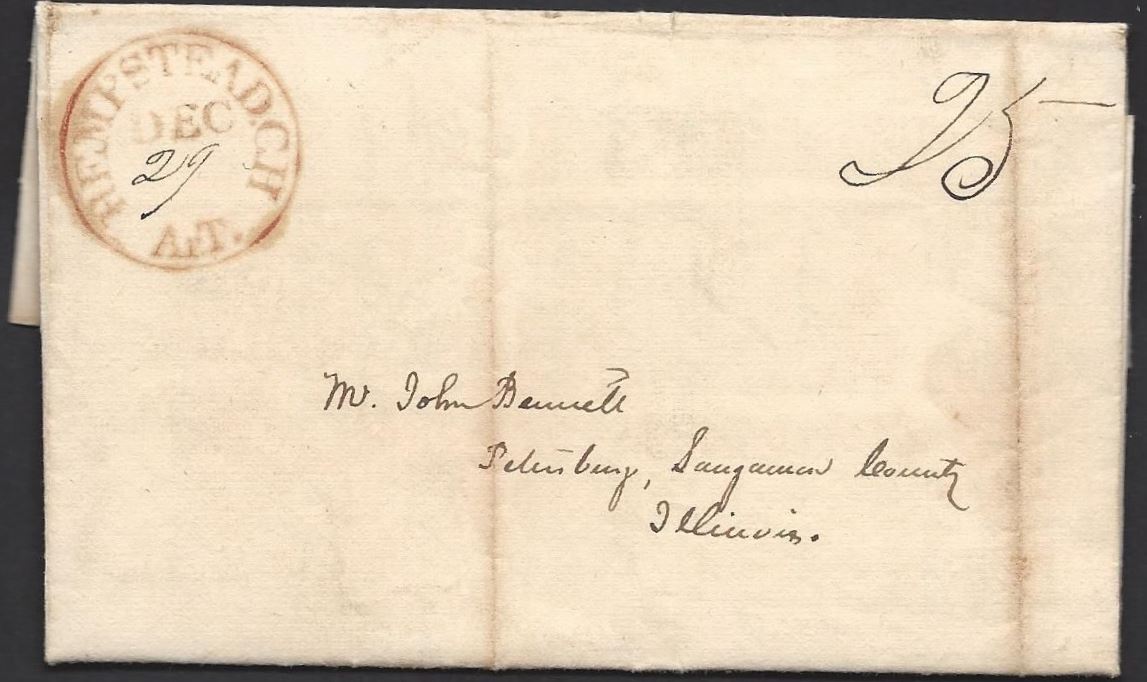 HEMPSTEAD C H
DEC
29
A.T.
25
Mr. John Bennett
Petersburg, Sangamon County
Illinois.